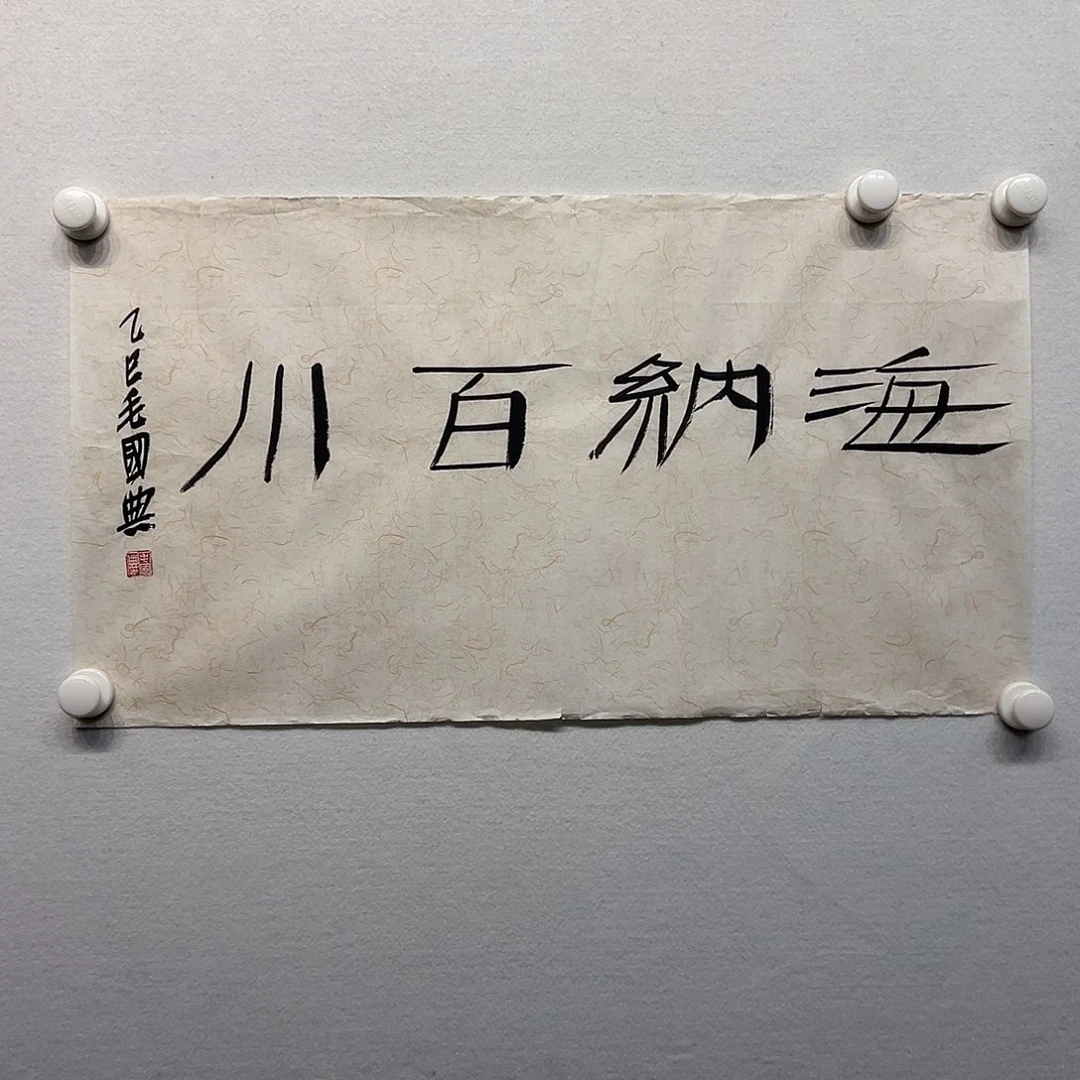 海納百川
乙巳毛國典